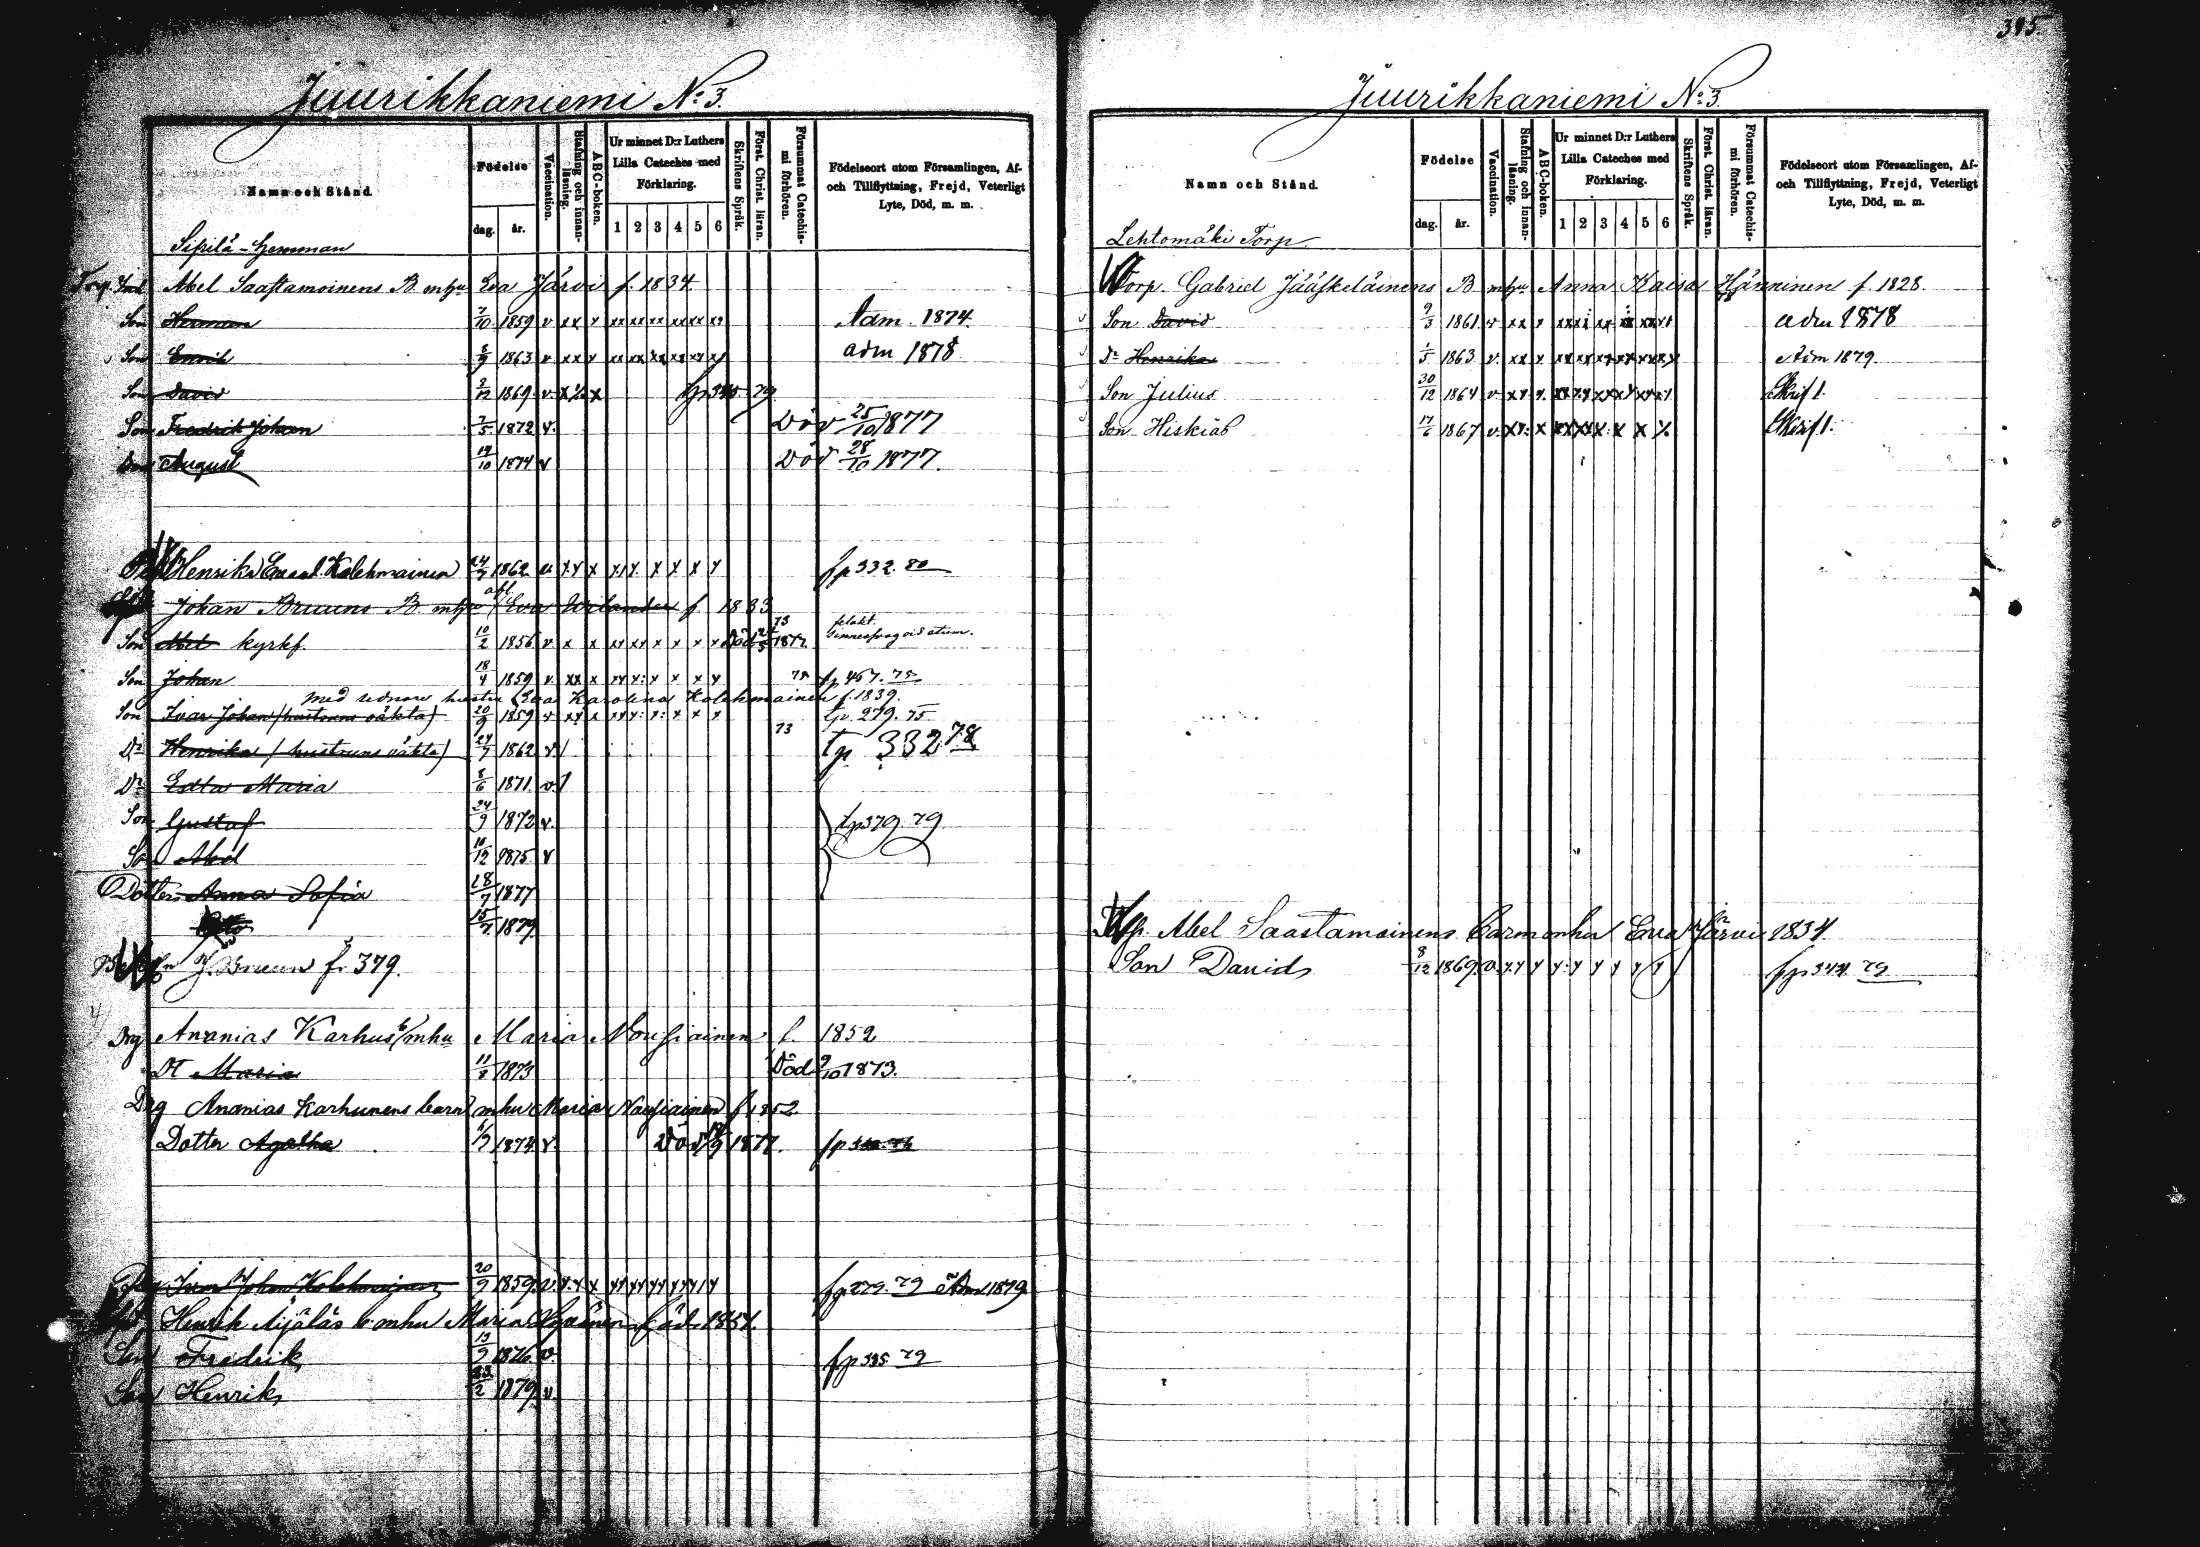 395.
Juurikkaniemi No: 3.
Namn och Stånd.
Födelse
dag. år.
Vaccination.
Stafning och innan-läsning.
ABC-boken.
Ur minnet D:r Luthers Lilla Cateches med Förklaring.
1 2 3 4 5 6
Skriftens Språk.
Först. Christ. läran.
Försummat Catechismi förhören.
Födelseort utom Församlingen, Af- och Tillflyttning, Frejd, Veterligt Lyte, Död, m. m.
Sipilä-hemman
Torp. Abel Saastamoinens B. mhu Eva Järvi f. 1834
Son Herman 7/10 1859 v xx x xx xx xx xx xx xx Adm. 1874.
Son Enrik 8/9 1863 v xx x xx xx xx xx xx x adm 1878
Son David 8/12 1869 v x x x 79
Son Fredrik Johan 7/5 1872 v. Död 25/10 1877
Son August 19/10 1874 v Död 28/10 1877.
Henrika Kolehmainen 24/7 1862 v x x x x x x x x fp 332. 80
Johan Bruuns B mhu Eva f. 1833
Son Abel kyrkf. 10/2 1856 v x x xx xx x x x x Död 1877. 73
Son Johan 18/4 1859 v xx x xx x: x x x x 75 fp 457. 75
med sednare hustru Eva Karolina Kolehmainen f. 1839.
Son Ivar Johan (hustruns oäkta) 20/9 1859 v xx x xx x: x: x x x 279. 75
Dr Henrika (hustruns oäkta) 24/7 1862 v 73 tp 332 78
Dr Edla Maria 8/6 1871 v
Son Gustaf 24/9 1872 v. tp 379. 79.
Son Abel 10/12 1875 v
Dotter Anna Sofia 28/7 1877
15/7 1879.
J. Bruun fr 379.
Drg Ananias Karhus b/mhu Maria Nousiainen f. 1852
Dt Maria 11/8 1873 Död 9/10 1873.
Drg Ananias Karhunens barn mhu Maria Nousiainen f 1852.
Dotter Agatha 1874 v. Död 1877.
Ivar Johan Kolehmainen 20/9 1859. v. x. x x xx xx xx xx x x fp 279. 79 Adm 1879.
Henrik Äijäläs b. mhu Maria född 1854.
Son Fredrik 19/9 1876 v. fp 395 79
Son Henrik 22/2 1879 v.
Juurikkaniemi No: 3.
Namn och Stånd.
Födelse
dag. år.
Vaccination.
Stafning och innan-läsning.
ABC-boken.
Ur minnet D:r Luthers Lilla Cateches med Förklaring.
1 2 3 4 5 6
Skriftens Språk.
Först. Christ. läran.
Försummat Catechismi förhören.
Födelseort utom Församlingen, Af- och Tillflyttning, Frejd, Veterligt Lyte, Död, m. m.
Lehtomäki Torp.
Torp. Gabriel Jääskeläinens B mhu Anna Kaisa Hänninen f. 1828.
Son David 9/3 1861 v xx x xx xx xx xx xx adm 1878
Dr Henrika 1/5 1863 v. xx. x xx xx xx xx xx Adm 1879.
Son Julius 30/12 1864 v x x x. xx xx xx x xx Skrift.
Son Hiskias 17/6 1867 v. xx: x xx xx x: x x x Skrift.
Abel Saastamoinens barn mhu Eva Järvi 1834.
Son David 8/12 1869. v. x x x x: x x x x x fp 344 79